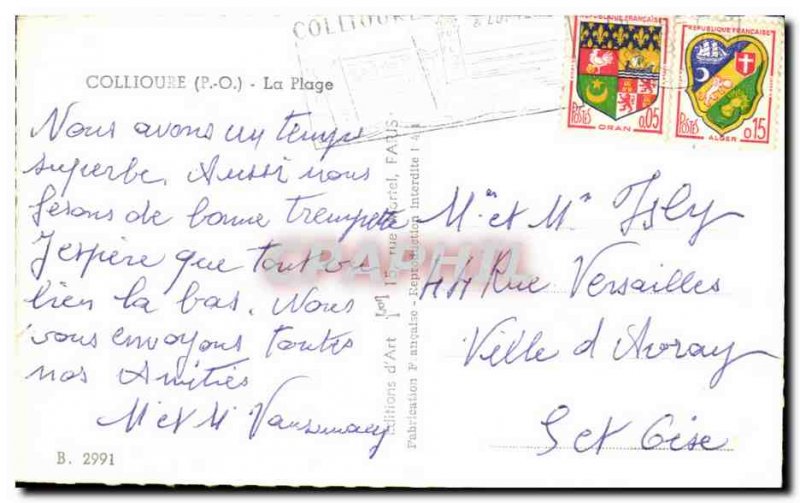 COLLIOURE
COLLIOURE (P.-O.) - La Plage
RÉPUBLIQUE FRANÇAISE
POSTES 0,05
ORAN
RÉPUBLIQUE FRANÇAISE
POSTES 0,15
ALGER
Nous avons un temps
superbe. Aussi nous
fesons de bonne trempette
J'espère que tout va
bien la bas. Nous
vous envoyons toutes
nos Amitiés
M et M
B. 2991
Editions d'Art 15, rue Martel, PARIS
Fabrication Française - Reproduction interdite
Mr et Mm Isly
44 Rue Versailles
Ville d'Avray
S et Oise
CPAPHIL